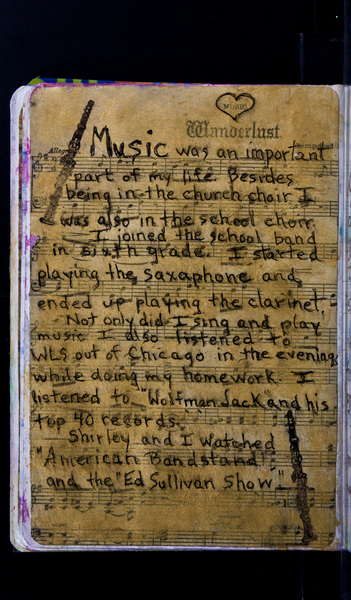 MUSIC
Wanderlust
Music was an important
part of my life. Besides
being in the church choir I
was also in the school choir.
I joined the school band
in sixth grade. I started
playing the saxaphone and
ended up playing the clarinet.
Not only did I sing and play
music I also listened to
WLS out of Chicago in the evenings
while doing my homework. I
listened to "Wolfman Jack and his
top 40 records.
Shirley and I watched
"American Bandstand"
and the "Ed Sullivan Show".